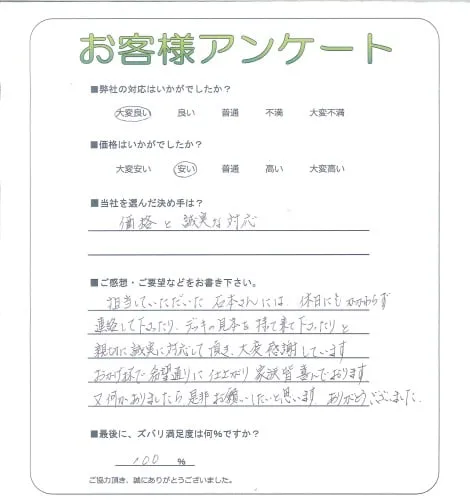 お客様アンケート
■弊社の対応はいかがでしたか？
大変良い 良い 普通 不満 大変不満
■価格はいかがでしたか？
大変安い 安い 普通 高い 大変高い
■当社を選んだ決め手は？
価格と誠実な対応
■ご感想・ご要望などをお書き下さい。
担当していただいた石本さんには 休日にもかかわらず
連絡して下さったり、デッキの見本を持て来て下さったりと
親切に誠実に対応して頂き、大変感謝しています
おかげ様で希望通りに仕上がり家族皆喜んでおります
又何かありましたら是非お願いしたいと思います ありがとうございました。
■最後に、ズバリ満足度は何%ですか？
100 %
ご協力頂き、誠にありがとうございました。